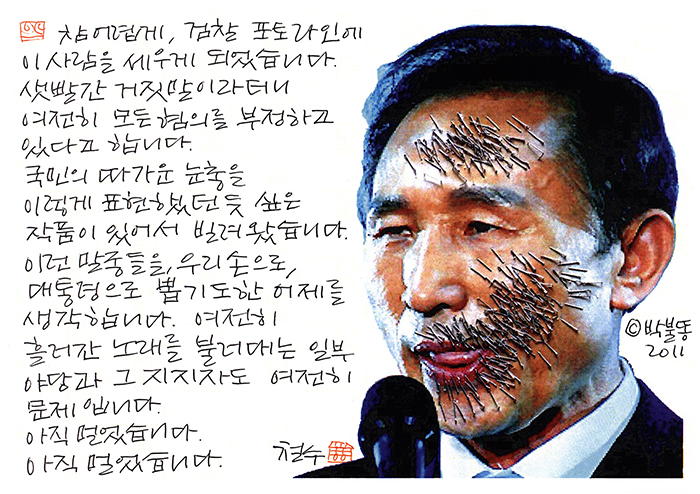 참 어렵게, 검찰 포토라인에
이 사람을 세우게 되었습니다.
샛빨간 거짓말이라더니
여전히 모든 혐의를 부정하고
있다고 합니다.
국민의 따가운 눈총을
이렇게 표현했던 듯 싶은
작품이 있어서 빌려 왔습니다.
이런 말종들을, 우리 손으로,
대통령으로 뽑기도 한 어제를
생각합니다. 여전히
흘러간 노래를 불러대는 일부
야당과 그 지지자도 여전히
문제입니다.
아직 멀었습니다.
아직 멀었습니다.
철수
©박불똥
2011